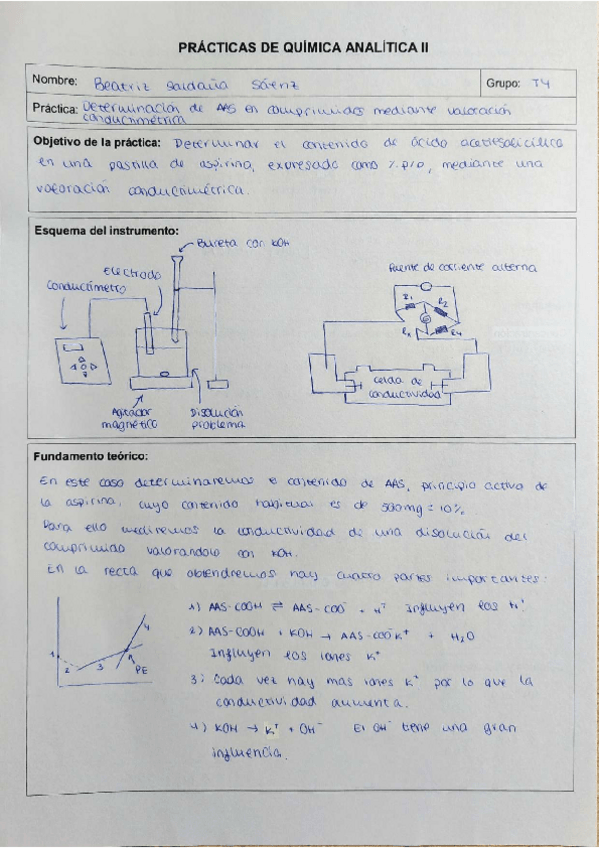 PRÁCTICAS DE QUÍMICA ANALÍTICA II
Nombre: Beatriz Saldaña Sáenz
Grupo: T4
Práctica: Determinación de AAS en comprimidos mediante valoración
conductimétrica
Objetivo de la práctica: Determinar el contenido de ácido acetilsalicílico
en una pastilla de aspirina, expresado como % p/p, mediante una
valoración conductimétrica.
Esquema del instrumento:
Bureta con KOH
Electrodo
Conductímetro
Fuente de corriente alterna
R1
R2
Rx
R4
celda de
conductividad
Agitador
magnético
Disolución
problema
Fundamento teórico:
En este caso determinaremos el contenido de AAS, principio activo de
la aspirina, cuyo contenido habitual es de 500mg ± 10%.
Para ello mediremos la conductividad de una disolución del
comprimido valorandolo con KOH.
En la recta que obtendremos hay cuatro partes importantes:
1) AAS-COOH ⇌ AAS-COO⁻ + H⁺ Influyen los H⁺
2) AAS-COOH + KOH → AAS-COO⁻K⁺ + H₂O
Influyen los iones K⁺
3) Cada vez hay mas iones K⁺ por lo que la
conductividad aumenta.
4) KOH → K⁺ + OH⁻ El OH⁻ tiene una gran
influencia.
1
2
3
4
PE